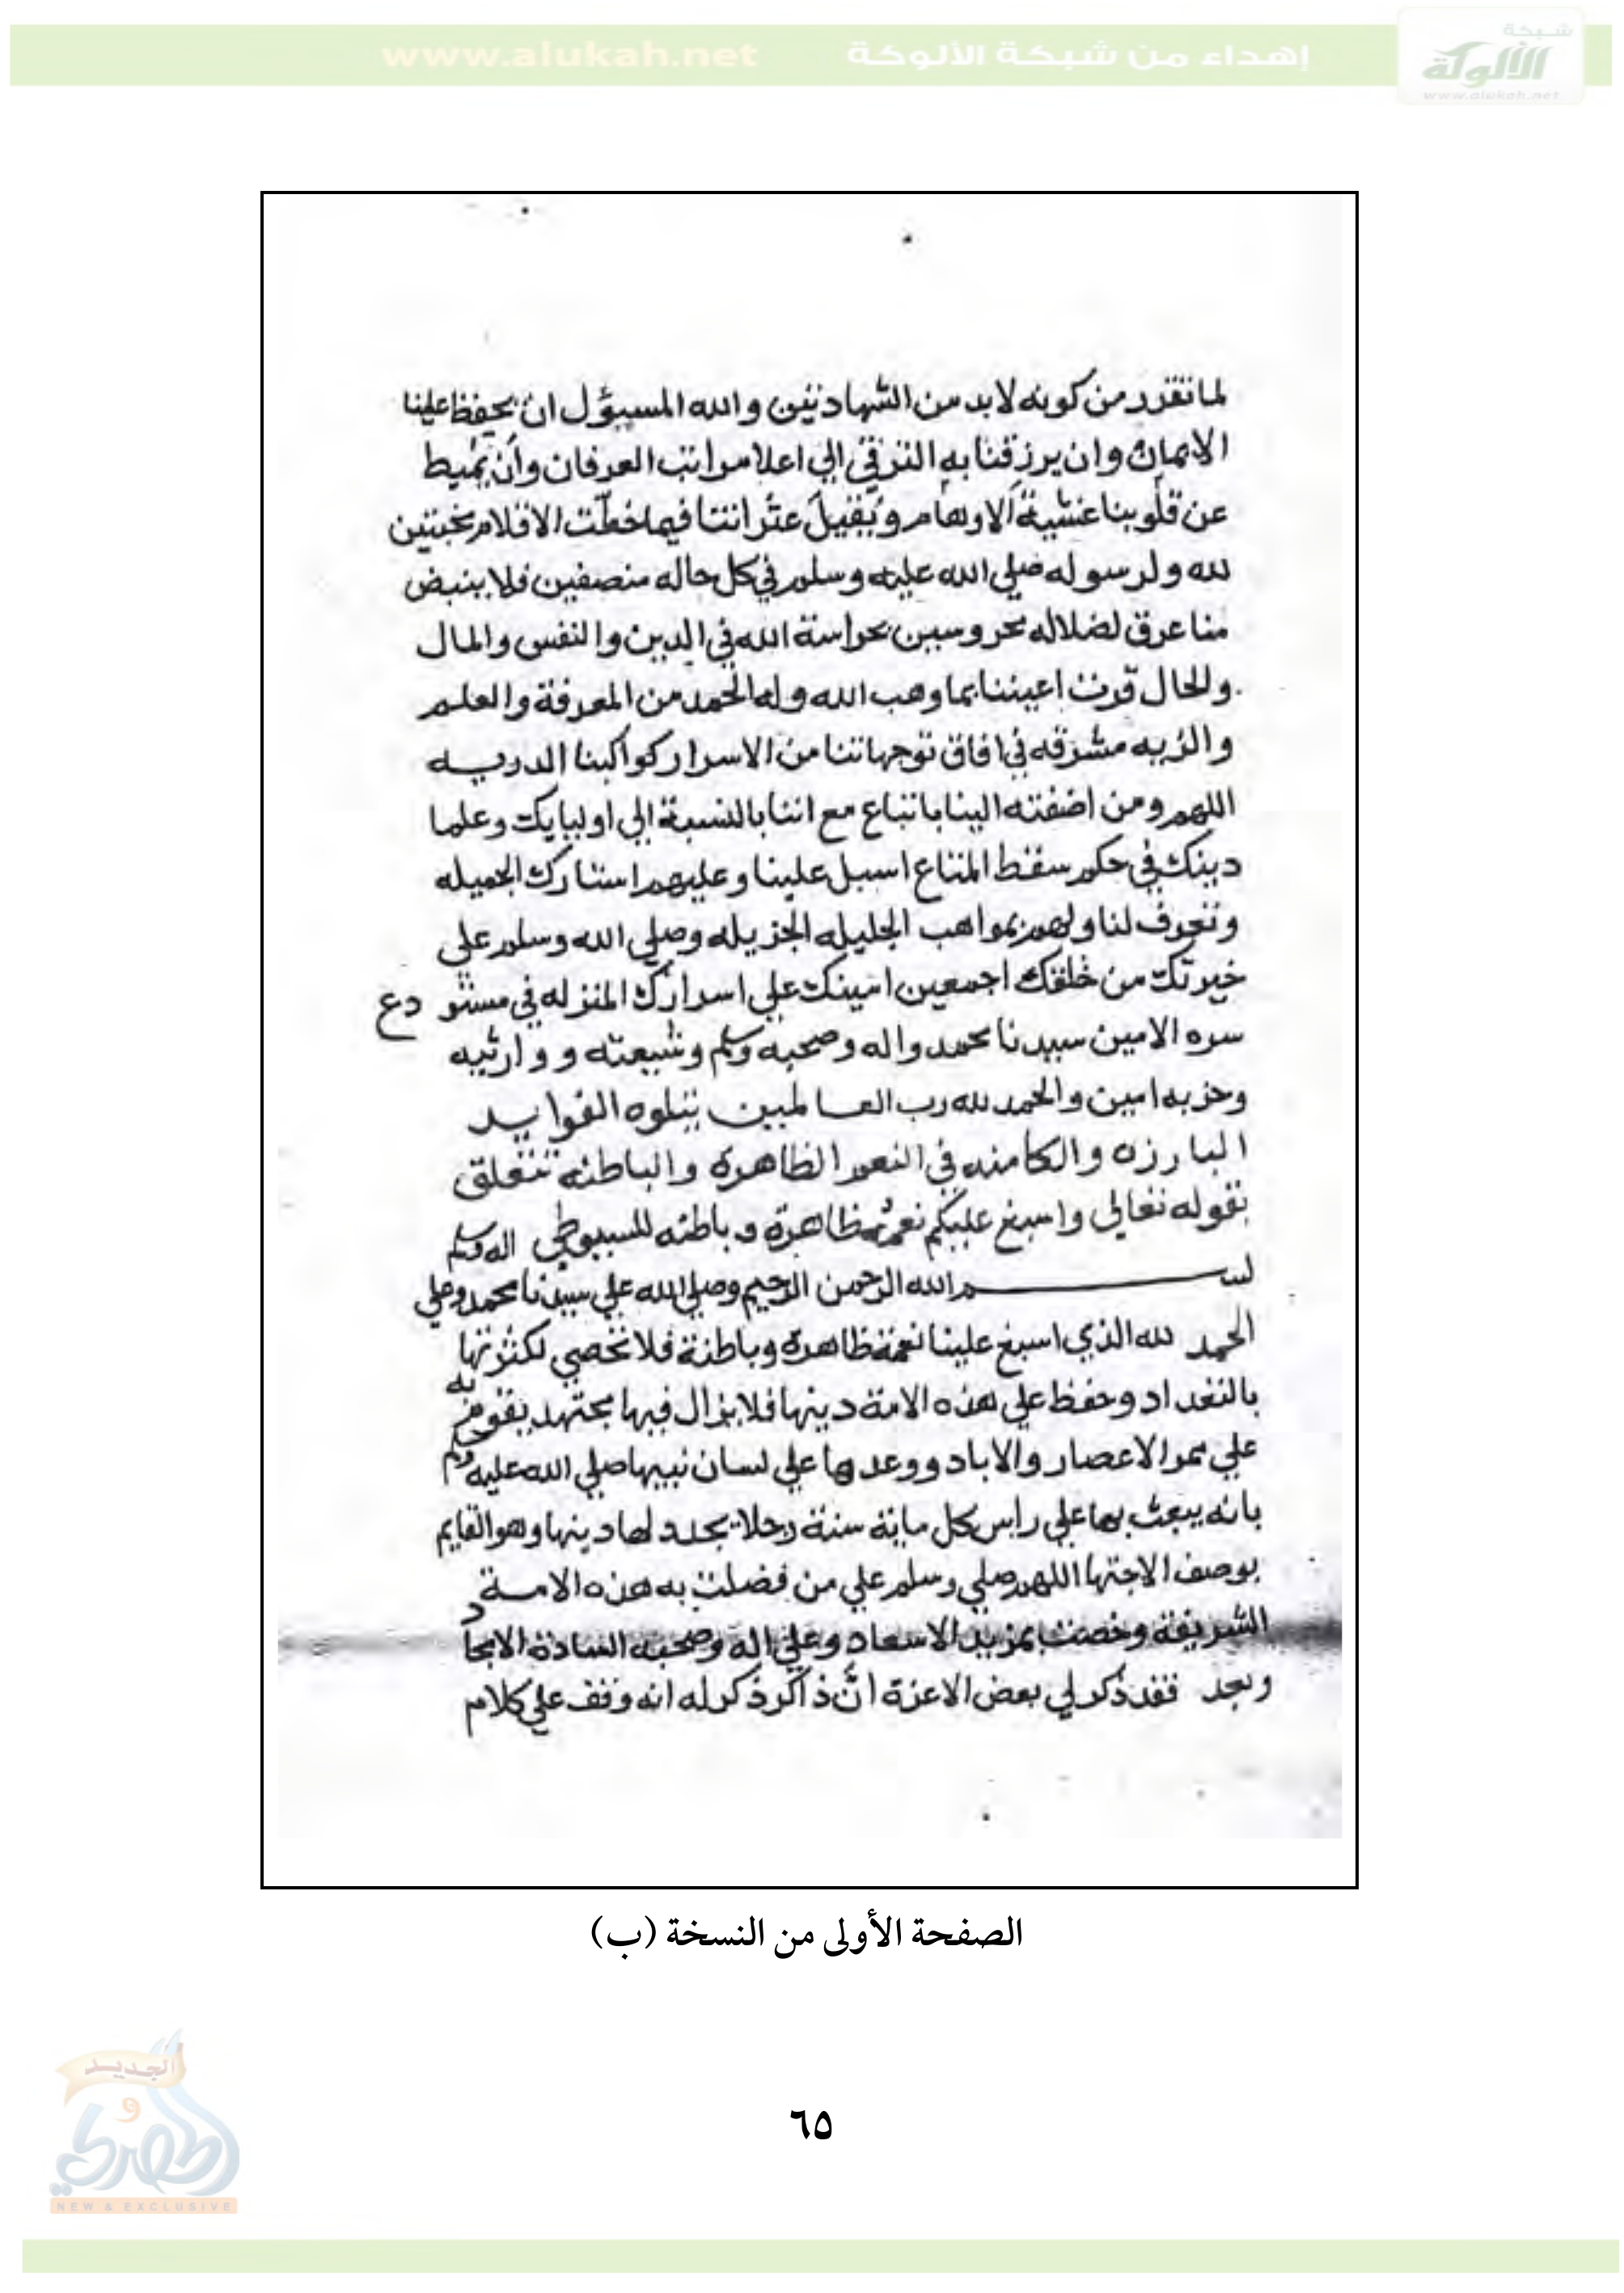 شبكة
الألوكة
www.alukah.net
إهداء من شبكة الألوكة www.alukah.net
لما تقرر من كونه لا بد من الشهادتين والله المسيؤل ان يحفظ علينا
الايمان وان يرزقنا به الترقي الي اعلا مراتب العرفان وأن يميط
عن قلوبنا غشية الاوهام ويقيل عثراتنا فيما خطت الاقلام مخبتين
لله ولرسوله صلي الله عليه وسلم في كل حاله منصفين فلا ينبض
منا عرق لضلاله محروسين بحراسة الله في الدين والنفس والمال
والحال قرت اعيننا بما وهب الله وله الحمد من المعرفة والعلم
مشرقه في افاق توجهاتنا من الاسرار كواكبنا الدريه
اللهم ومن اضفته الينا باتباع مع اننا بالنسبة الي اوليايك وعلما
دينك في حكم سقط المتاع اسبل علينا وعليهم استارك الجميله
وتعرف لنا ولهم بمواهب الجليله الجزيله وصلي الله وسلم علي
خيرتك من خلقك اجمعين امينك علي اسرارك المنزله في مستو دع
سره الامين سيدنا محمد واله وصحبه وسلم وشيعته ووارثيه
وحزبه امين والحمد لله رب العالمين يتلوه الفوايد
البارزه والكامنه في النعم الظاهرة والباطنه تتعلق
بقوله تعالي واسبغ عليكم نعمه ظاهرة وباطنه للسيوطي اله وسلم
بسم الله الرحمن الرحيم وصلي الله علي سيدنا محمد وعلي
الحمد لله الذي اسبغ علينا نعمة ظاهرة وباطنة فلا تحصي لكثرتها
بالتعداد وحفظ علي هذه الامة دينها فلا يزال فيها مجتهد يقوم به
علي ممر الاعصار والاباد ووعدها علي لسان نبيها صلي الله عليه وسلم
بانه يبعث بها علي راس كل ماية سنة رجلا يجدد لها دينها وهو القايم
بوصف الاجتها اللهم صلي وسلم علي من فضلت به هذه الامة
الشريفة وخصت بمزيد الاسعاد وعلي اله وصحبه السادة الامجاد
وبعد فقد ذكر لي بعض الاعزة انّ ذاكر ذكر له انه وقف علي كلام
الصفحة الأولى من النسخة (ب)
٦٥
الجديد
و
الحصري
NEW & EXCLUSIVE